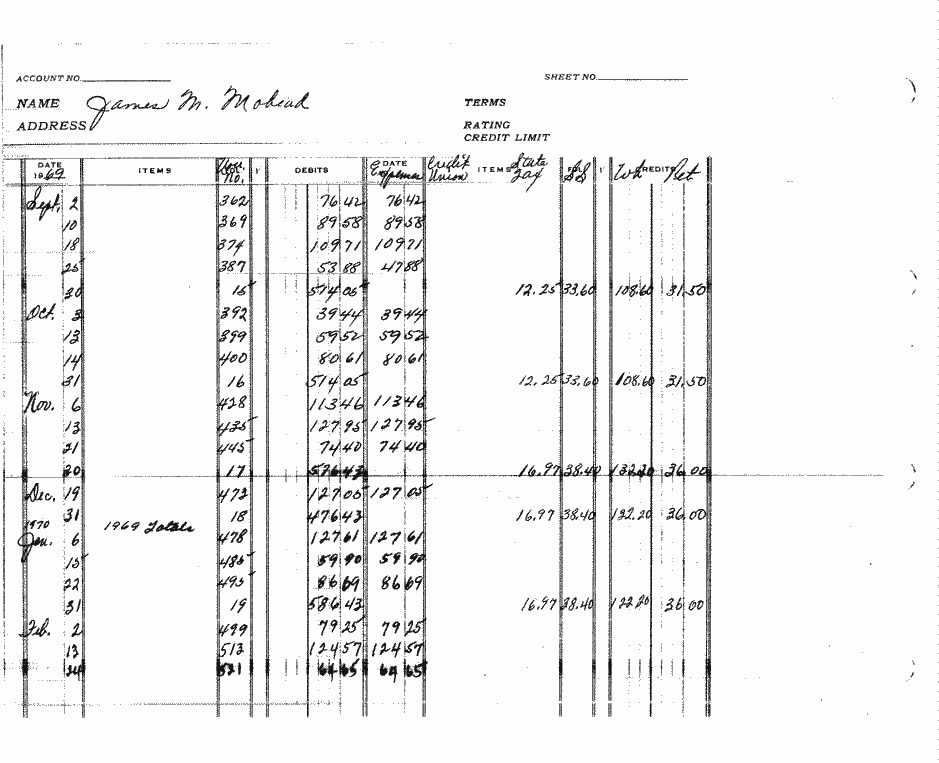 ACCOUNT NO. SHEET NO.
NAME James M. TERMS
ADDRESS RATING
CREDIT LIMIT
DATE 1969 ITEMS Vou. No. DEBITS DATE Expense Credit Union ITEMS State Tax FOL. SS Wh CREDITS Ret
Sept. 2 362 76 42 76 42
10 369 89 58 89 58
18 374 109 71 109 71
25 387 53 88 47 88
30 15 514 05 12.25 33.60 108.60 31.50
Oct. 3 392 39 44 39 44
13 399 59 52 59 52
14 400 80 61 80 61
31 16 514 05 12.25 33.60 108.60 31.50
Nov. 6 428 113 46 113 46
13 435 127 95 127 95
21 445 74 40 74 40
30 17 43 16.97 38.40 36.00
Dec. 19 472 127 05 127 05
31 18 476 43 16.97 38.40 122.20 36.00
1970 1969 Totals
Jan. 6 478 127 61 127 61
15 485 59 90 59 90
22 495 86 69 86 69
31 19 586 43 16.97 38.40 122.20 36.00
Feb. 2 499 79 25 79 25
13 513 124 57 124 57
24 521 64 65 64 65